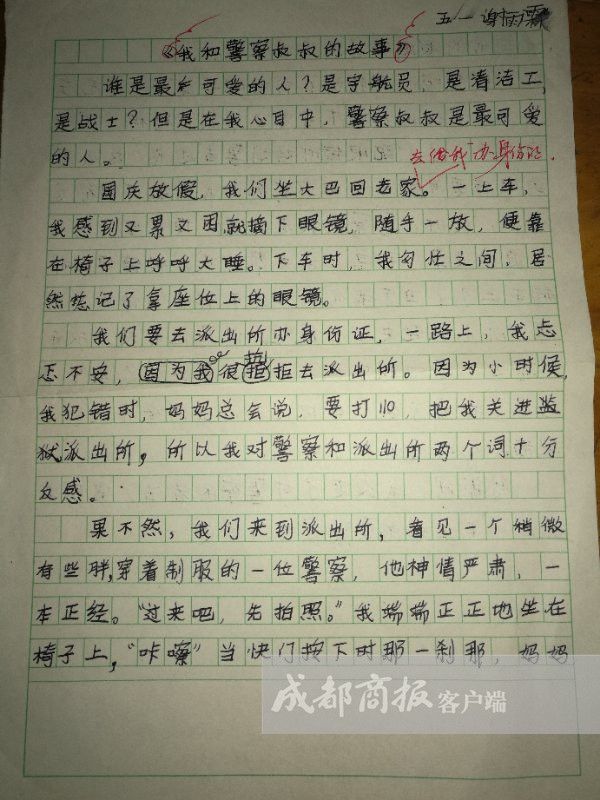 五一 谢雨霖
《我和警察叔叔的故事》
谁是最可爱的人？是宇航员，是清洁工，
是战士？但是在我心目中，警察叔叔是最可爱
的人。
去给我办身份证.
国庆放假，我们坐大巴回老家。一上车，
我感到又累又困，就摘下眼镜，随手一放，便靠
在椅子上呼呼大睡。下车时，我匆忙之间，居
然忘记了拿座位上的眼镜。
我们要去派出所办身份证，一路上，我忐
忑不安，因为我很拒去派出所。因为小时候，
我犯错时，妈妈总会说，要打110，把我关进监
狱派出所，所以我对警察和派出所两个词十分
反感。
果不然，我们来到派出所，看见一个稍微
有些胖，穿着制服的一位警察，他神情严肃，一
本正经。“过来吧，先拍照。”我端端正正地坐在
椅子上，“咔嚓”当快门按下时那一刹那，妈妈
成都商报客户端